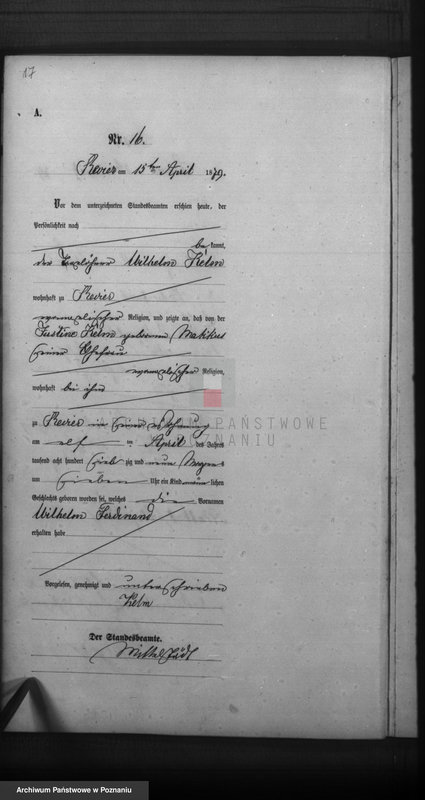 17
A.
Nr. 16.
Revier am 15ten April 1879.
Vor dem unterzeichneten Standesbeamten erschien heute, der
Persönlichkeit nach
bekannt,
der Wilhelm Kelm
wohnhaft zu Revier
evangelischer Religion, und zeigte an, daß von der
Justine Kelm geborenen
seiner Ehefrau
evangelischer Religion,
wohnhaft bei ihm
zu Revier in seiner Wohnung
am elf ten April des Jahres
tausend acht hundert siebzig und neun Morgens
um sieben Uhr ein Kind männlichen
Geschlechts geboren worden sei, welches die Vornamen
Wilhelm Ferdinand
erhalten habe
Vorgelesen, genehmigt und unterschrieben
Kelm
Der Standesbeamte.
ARCHIWUM PAŃSTWOWE
W POZNANIU
Archiwum Państwowe w Poznaniu